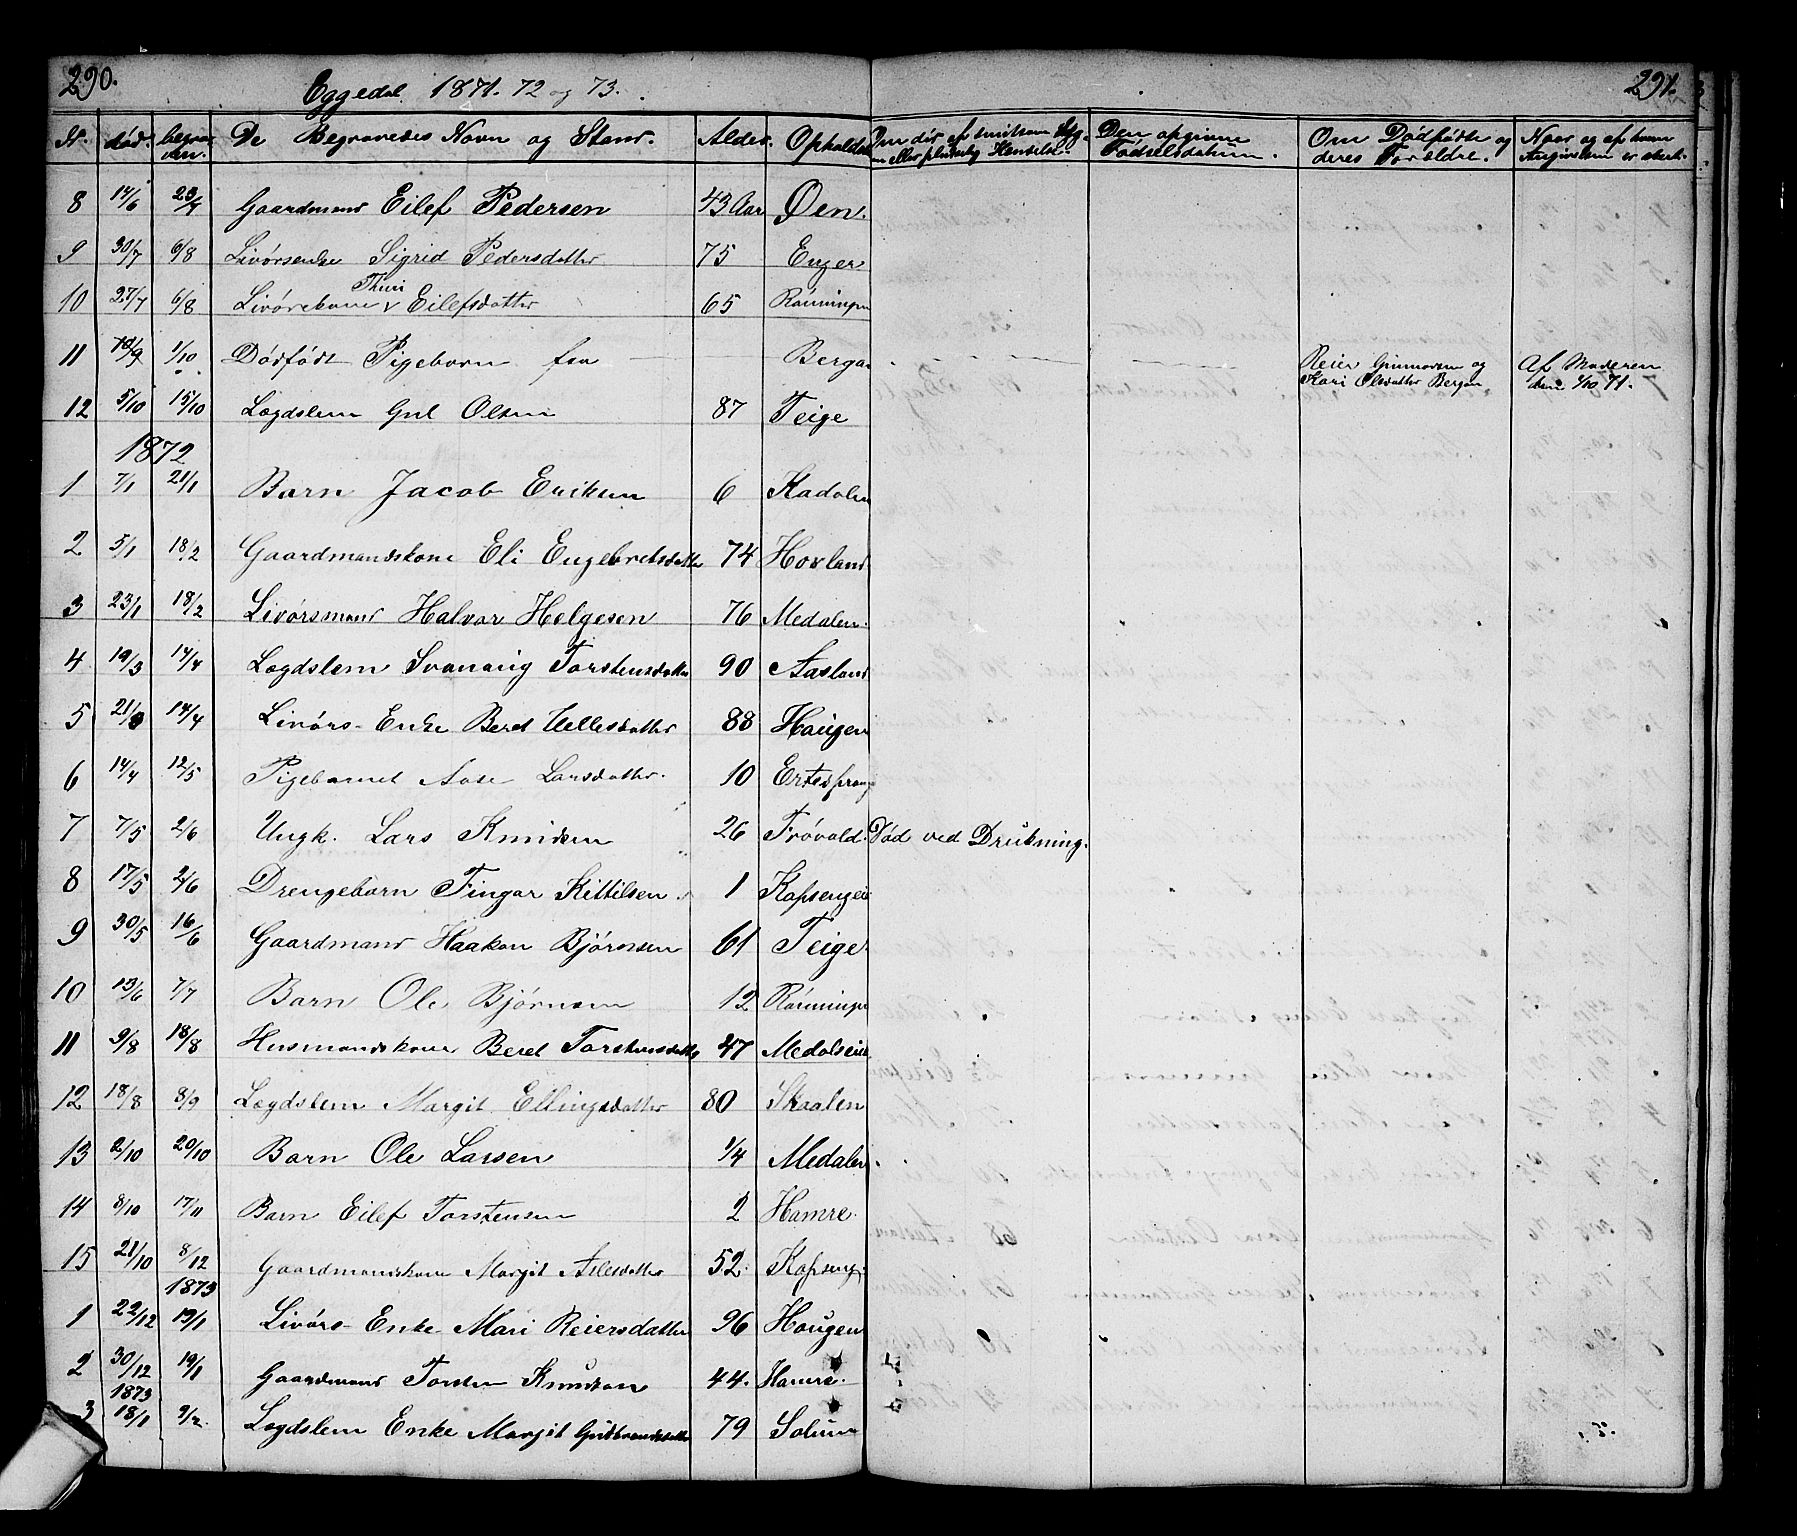 290.
Eggedal 1871. 72 og 73.
291.
No død. begraven. De Begravedes Navn og Stand. Alder. Opholds Den opgivne Fødselsdatum. Om Dødfødte og deres Forældre.
8 14/6 23/7 Gaardmand Eilef Pedersen 43 Aar Øen.
9 30/7 6/8 Livørsenke Sigrid Pedersdatter 75 Enger
10 27/7 6/8 Livørskone Thuri Eilefsdatter 65 Rønningen
11 10/9 1/10 Dødfødt Pigebarn fra Bergan Reier Gunnarsen og Kari Olsdatter Bergan Af Moderen den 1/10 71.
12 5/10 15/10 Lægdslem Gul Olsen 87 Teige
1872
1 7/1 21/1 Barn Jacob Eriksen 6 Kadalen
2 5/1 18/2 Gaardmandskone Eli Engebretsdatter 74 Hovland
3 23/1 18/2 Livørsmand Halvor Helgesen 76 Medalen.
4 19/3 14/4 Lægdslem Svanaug Torstensdatter 90 Aasland
5 21/3 14/4 Livørs-Enke Beret Uellesdatter 88 Haugen
6 14/4 12/5 Pigebarnet Aase Larsdatter. 10
7 7/5 2/6 Ungk. Lars Knudsen 26 Frøvold. Død ved Drukning.
8 17/5 2/6 Drengebarn Fingar Kittilsen 1 Kopsengeie
9 30/5 16/6 Gaardmand Haakon Bjørnsen 61 Teige.
10 13/6 7/7 Barn Ole Bjørnsen 12 Rønningen
11 9/8 18/8 Husmandskone Beret Torstensdatter 47 Medalseie
12 18/8 8/9 Lægdslem Margit Ellingsdatter 80 Skaalen
13 2/10 20/10 Barn Ole Larsen 1/4 Medalen
14 8/10 17/11 Barn Eilef Torstensen 2 Hamre.
15 21/10 8/12 Gaardmandskone Margit Aslesdatter 52. Kopseng.
1873
1 22/12 19/1 Livørs-Enke Mari Reiersdatter 96 Hougen
2 30/12 19/1 Gaardmand Torsten Knudsen 44. Hamre.
1873
3 18/1 9/2. Lægdslem Enke Margit Gulbrandsdatter 79 Solum